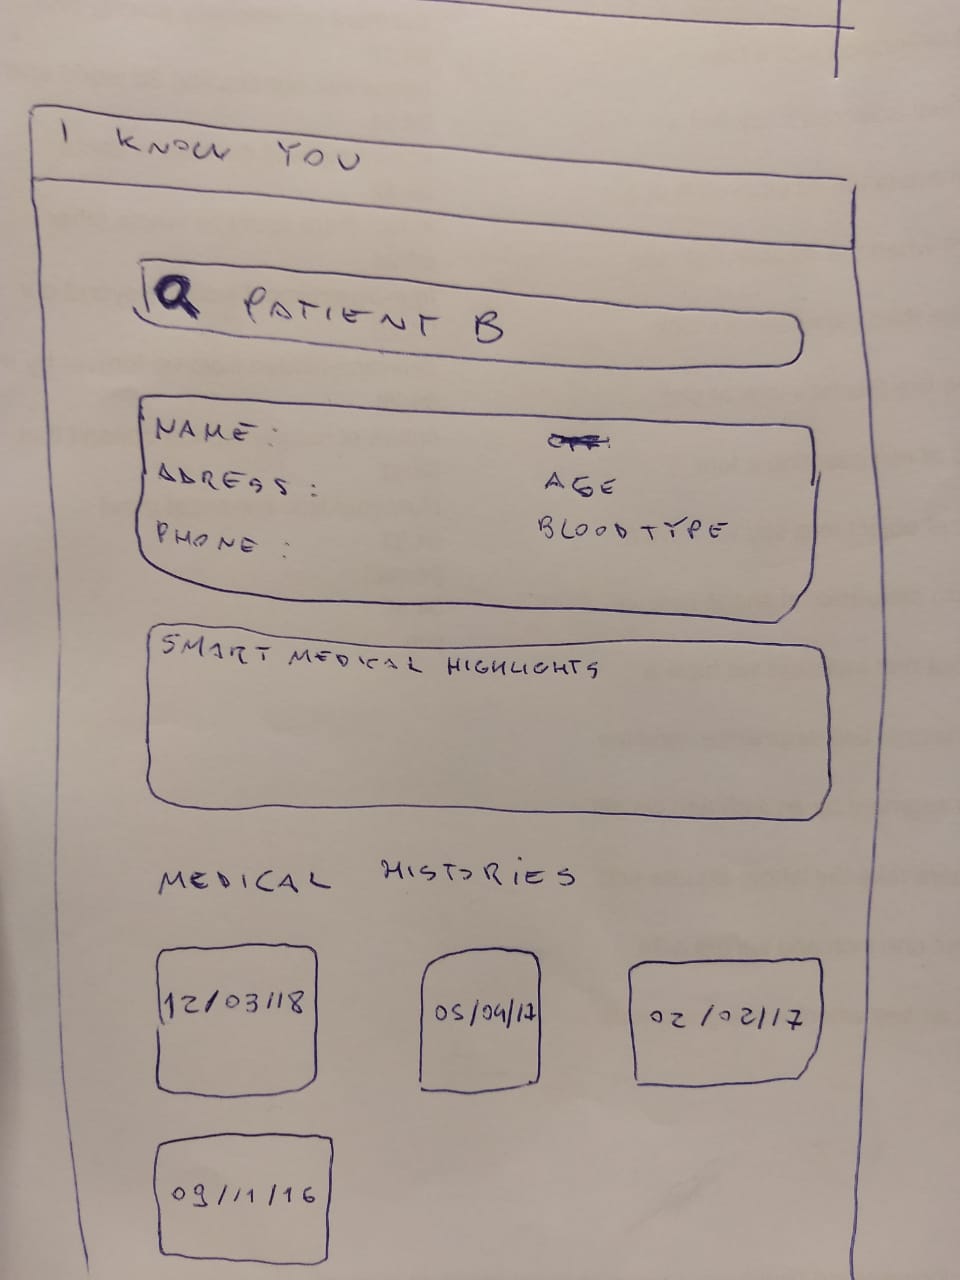 I KNOW YOU
PATIENT B
NAME:
ADRESS:
AGE
PHONE:
BLOOD TYPE
SMART MEDICAL HIGHLIGHTS
MEDICAL HISTORIES
12/03/18
05/04/17
02/02/17
09/11/16